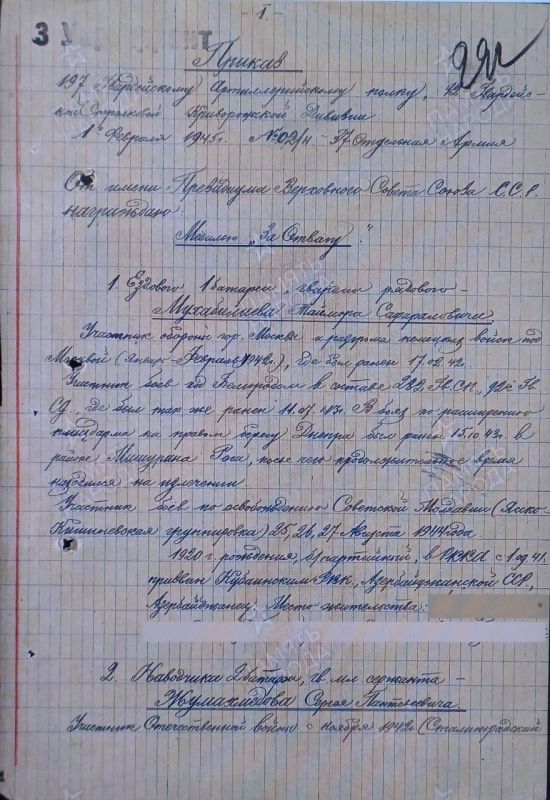 - 1. -
3
291
Приказ
197 Гвардейскому Артиллерийскому полку, 92 Гвардейс-
кой Стрелковой Криворожской Дивизии
1 Февраля 1945г. №02/н - 37 Отдельная Армия
От имени Президиума Верховного Совета Союза С.С.Р.
награждаю:
Медалью "За Отвагу".
1. Ездового 1 батареи гвардии рядового -
Таймора
Участник обороны гор. Москвы и разгрома немецких войск под
Москвой (Январь-Февраль 1942г.), где был ранен 17.02.42.
Участник боев под Белгородом в составе 282 Гв.СП, 92й Гв
СД, где был так же ранен 11.07.43г. В боях по расширению
плацдарма на правом берегу Днепра был ранен 15.10.43г. в
районе Мишурина Рога, после чего продолжительное время
находился на излечении.
Участник боев по освобождению Советской Молдавии (Ясско-
Кишиневская группировка) 25, 26, 27 Августа 1944 года.
1920 г. рождения, б/партийный, в РККА с 1.09.41.
призван Кубинским РВК, Азербайджанской ССР,
Азербайджанец. Место жительства:
2. Наводчика 2 батареи, гв. мл. сержанта -
Сергея
Участник Отечественной войны с ноября 1942г (Сталинградский
ПАМЯТЬ НАРОДА